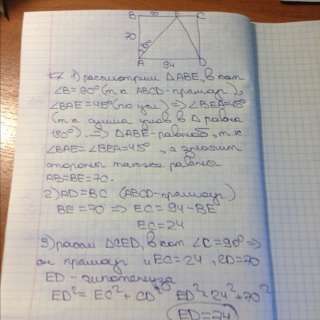 B E C
70
45°
A 94 D
7. 1) рассмотрим ΔABE, в кот
∠B=90° (т.к ABCD-прямоуг),
∠BAE=45° (по усл) ⇒ ∠BEA=45°
(т.к сумма углов в Δ равна
180°) ⇒ ΔABE-равноб, т.к
∠BAE=∠BEA=45°, а значит
стороны также равны
AB=BE=70.
2) AD=BC (ABCD-прямоуг)
BE=70 ⇒ EC=94-BE
EC=24
3) рассм ΔCED, в кот ∠C=90° ⇒
он прямоуг и EC=24, CD=70
ED-гипотенуза
ED²=EC²+CD² ED²=24²+70²
ED=74